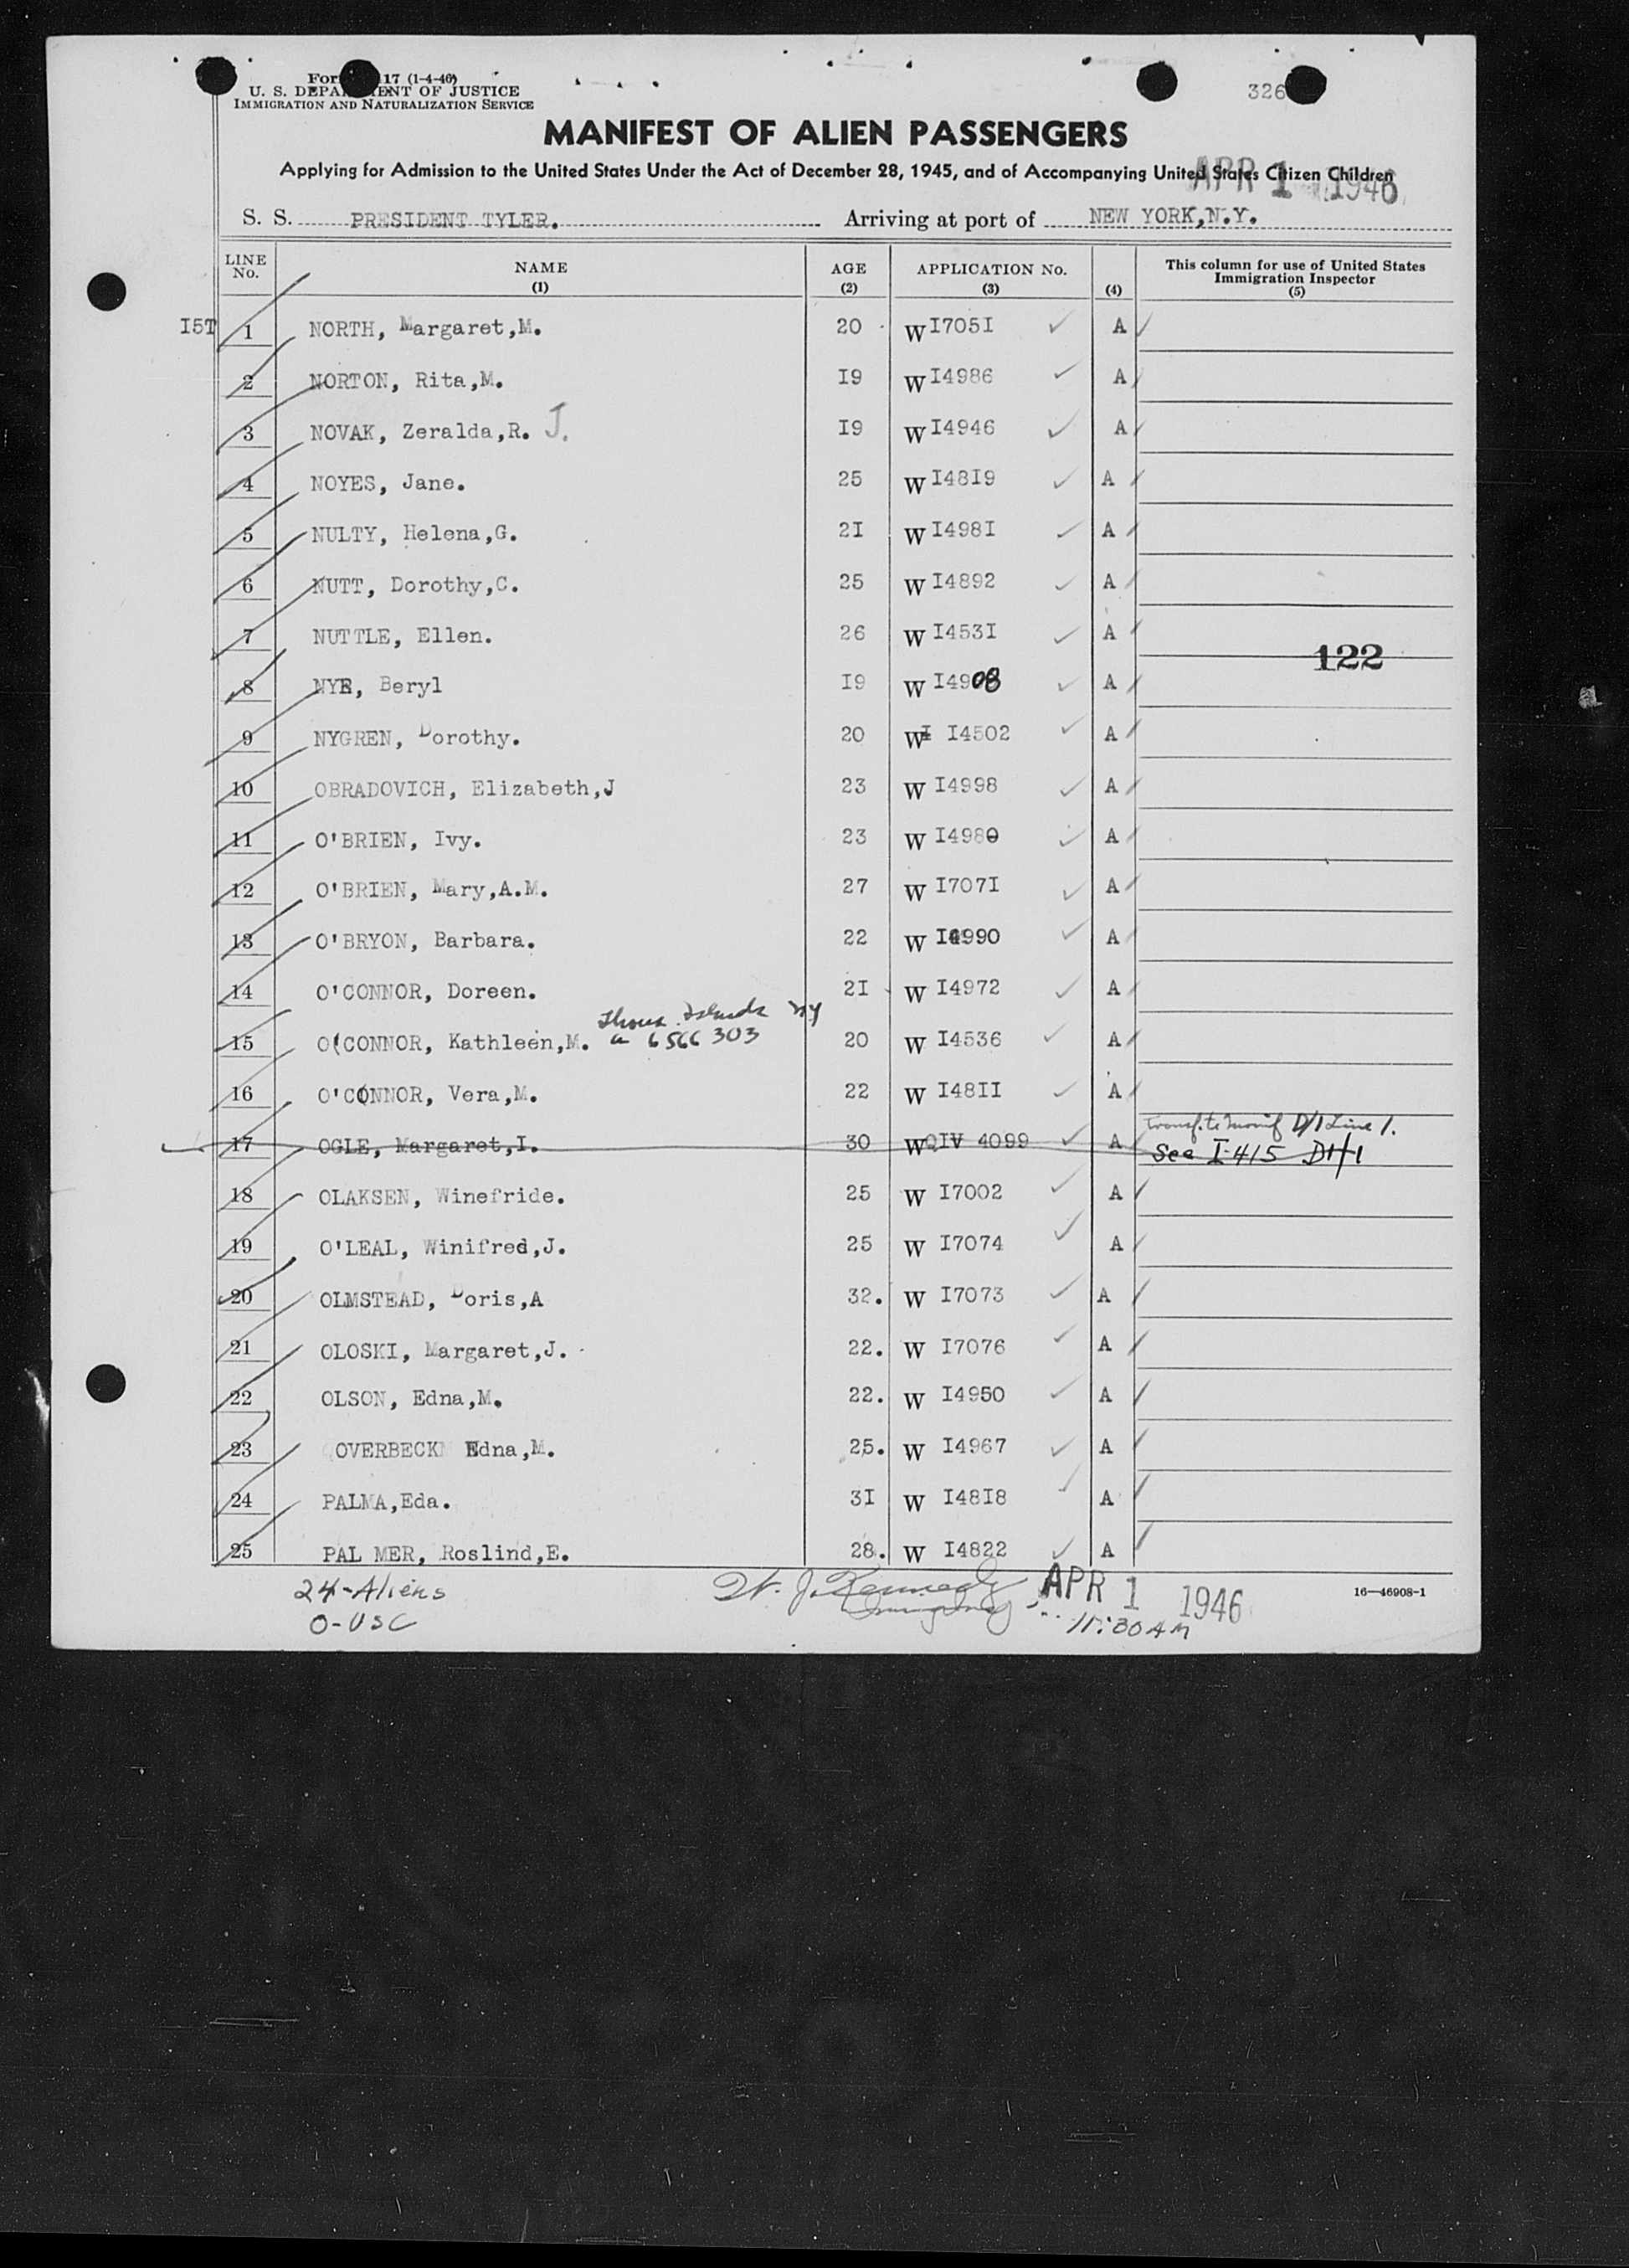 For 17 (1-4-46)
U. S. DEPA ENT OF JUSTICE
IMMIGRATION AND NATURALIZATION SERVICE
326
MANIFEST OF ALIEN PASSENGERS
Applying for Admission to the United States Under the Act of December 28, 1945, and of Accompanying United States Citizen Children
APR 1 1946
S. S. PRESIDENT TYLER. Arriving at port of NEW YORK,N.Y.
LINE No. NAME (1) AGE (2) APPLICATION No. (3) (4) This column for use of United States Immigration Inspector (5)
I5T 1 NORTH, Margaret,M. 20 W I705I ✓ A
2 NORTON, Rita,M. I9 W I4986 ✓ A
3 NOVAK, Zeralda,R. J. I9 W I4946 ✓ A
4 NOYES, Jane. 25 W I48I9 ✓ A
5 NULTY, Helena,G. 2I W I498I ✓ A
6 NUTT, Dorothy,C. 25 W I4892 ✓ A
7 NUTTLE, Ellen. 26 W I453I ✓ A
122
8 NYE, Beryl I9 W I4908 ✓ A
9 NYGREN, Dorothy. 20 W I I4502 ✓ A
10 OBRADOVICH, Elizabeth,J 23 W I4998 ✓ A
11 O'BRIEN, Ivy. 23 W I4980 ✓ A
12 O'BRIEN, Mary,A.M. 27 W I707I ✓ A
13 O'BRYON, Barbara. 22 W I4990 ✓ A
14 O'CONNOR, Doreen. 2I W I4972 ✓ A
Islands NY
15 O(CONNOR, Kathleen,M. a 6566 303 20 W I4536 ✓ A
16 O'CONNOR, Vera,M. 22 W I48II ✓ A
Transf. to Manif D/1 Line 1.
17 OGLE, Margaret,I. 30 W QIV 4099 ✓ A See I-415 D/1
18 OLAKSEN, Winefride. 25 W I7002 ✓ A
19 O'LEAL, Winifred,J. 25 W I7074 ✓ A
20 OLMSTEAD, Doris,A 32. W I7073 ✓ A
21 OLOSKI, Margaret,J. 22. W I7076 ✓ A
22 OLSON, Edna,M. 22. W I4950 ✓ A
23 OVERBECK Edna,M. 25. W I4967 ✓ A
24 PALMA,Eda. 3I W I48I8 ✓ A
25 PAL MER, Roslind,E. 28. W I4822 ✓ A
24-Aliens
0-USC
W. J. Kennedy
APR 1 1946
11:30 AM
16—46908-1